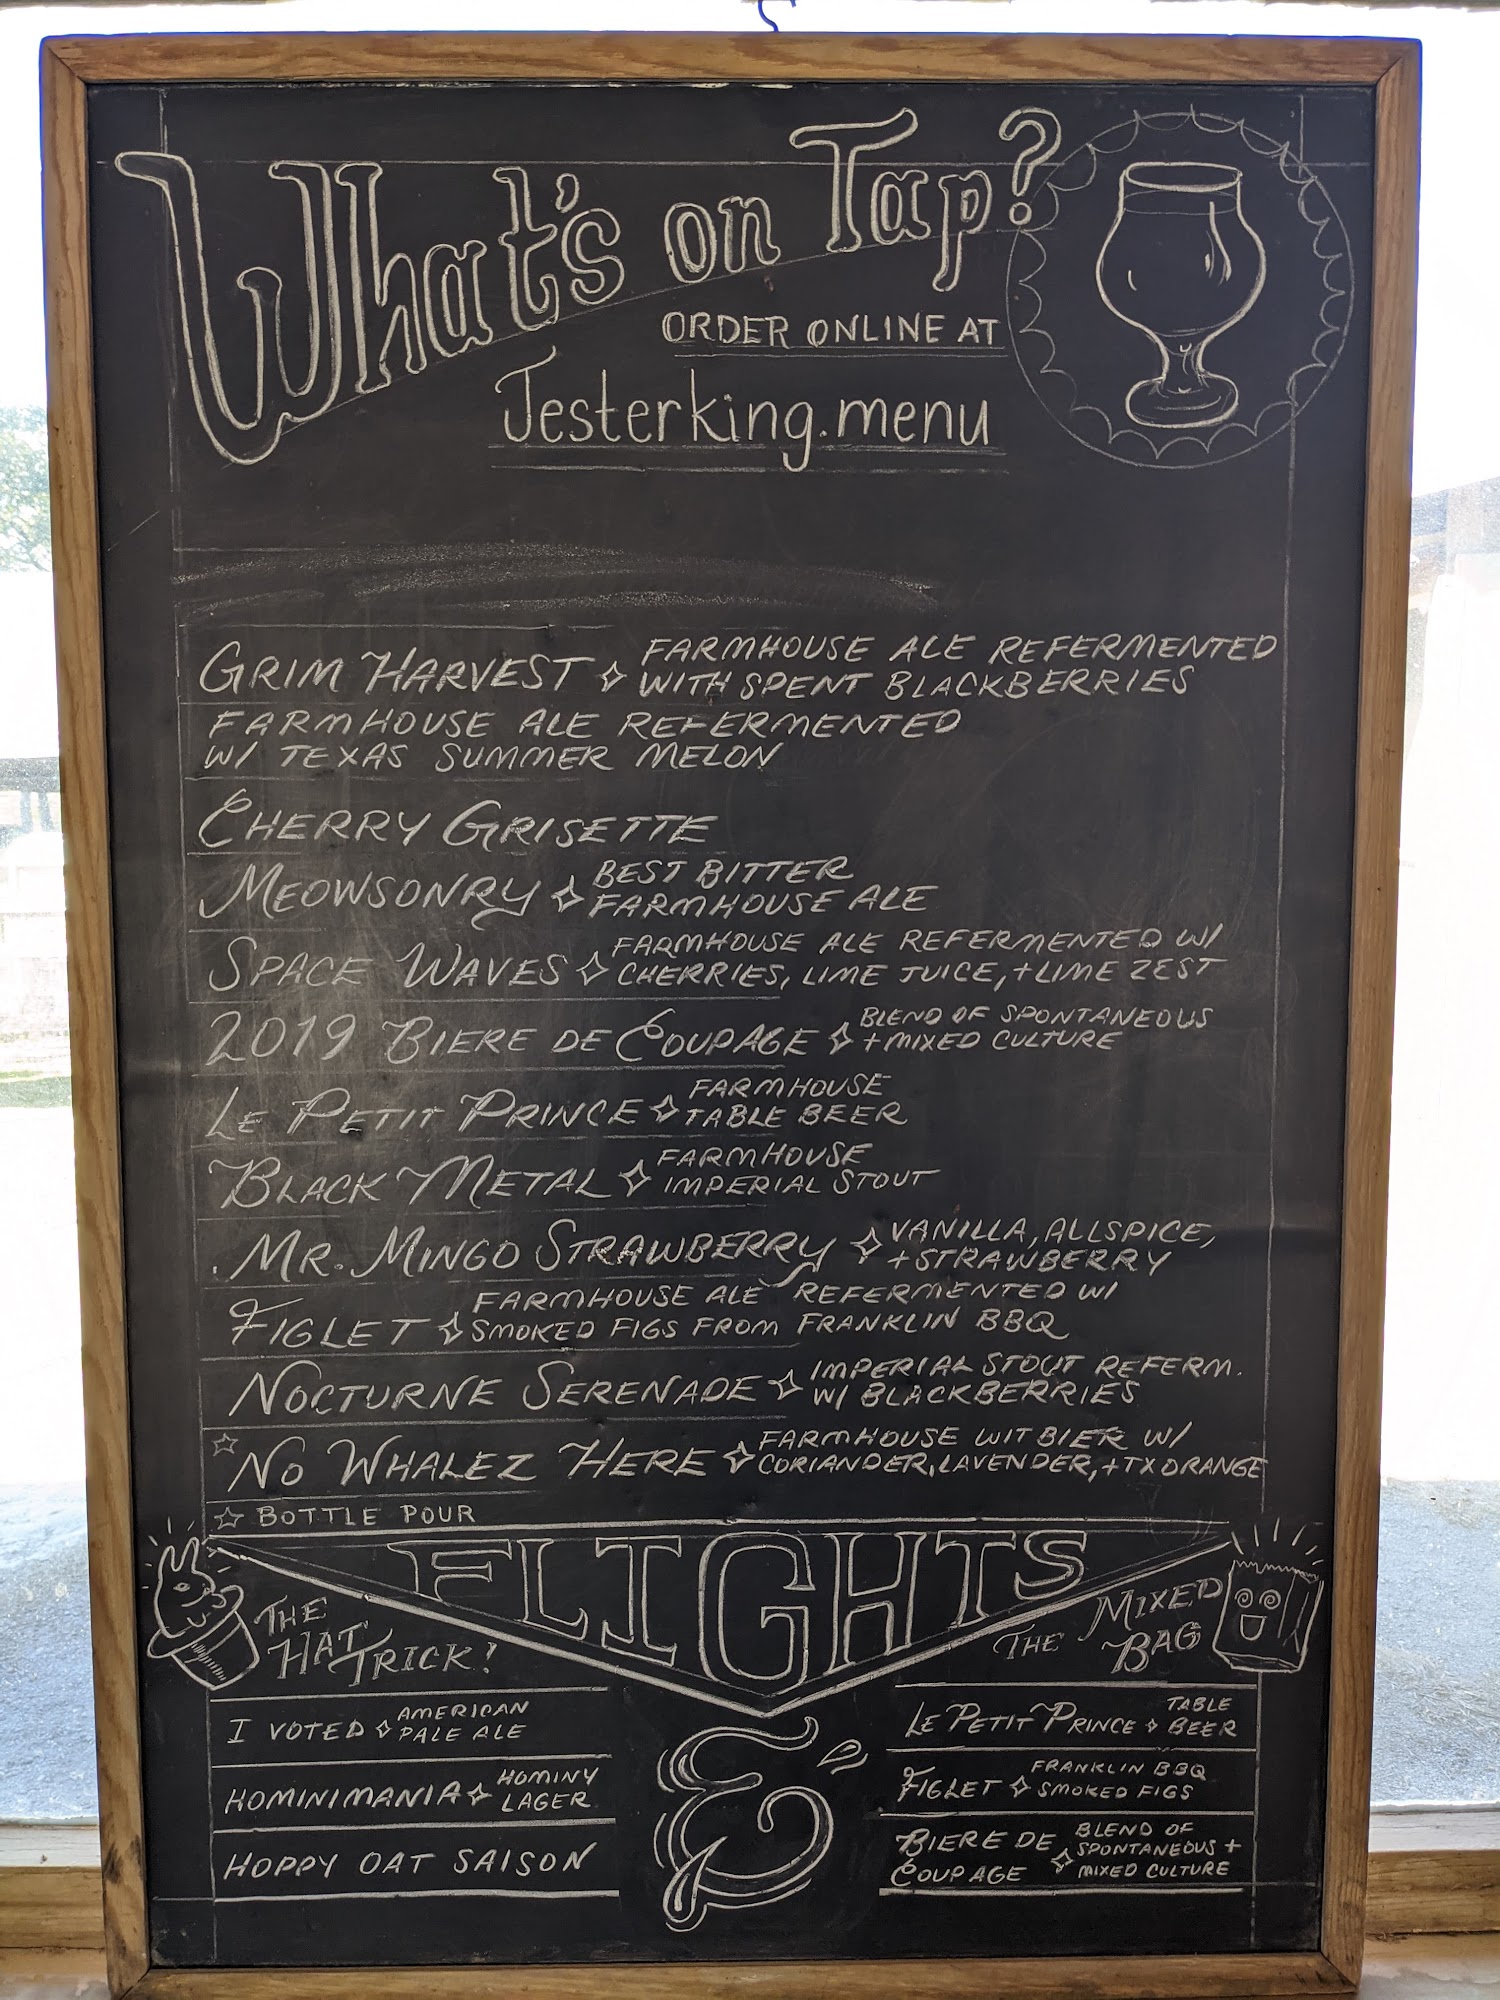 What's on Tap?
ORDER ONLINE AT
Jesterking.menu
GRIM HARVEST ✧ FARMHOUSE ALE REFERMENTED
WITH SPENT BLACKBERRIES
FARMHOUSE ALE REFERMENTED
W/ TEXAS SUMMER MELON
CHERRY GRISETTE
MEOWSONRY ✧ BEST BITTER
FARMHOUSE ALE
SPACE WAVES ✧ FARMHOUSE ALE REFERMENTED W/
CHERRIES, LIME JUICE, + LIME ZEST
2019 BIERE DE COUPAGE ✧ BLEND OF SPONTANEOUS
+ MIXED CULTURE
LE PETIT PRINCE ✧ FARMHOUSE
TABLE BEER
BLACK METAL ✧ FARMHOUSE
IMPERIAL STOUT
MR. MINGO STRAWBERRY ✧ VANILLA, ALLSPICE,
+ STRAWBERRY
FIGLET ✧ FARMHOUSE ALE REFERMENTED W/
SMOKED FIGS FROM FRANKLIN BBQ
NOCTURNE SERENADE ✧ IMPERIAL STOUT REFERM.
W/ BLACKBERRIES
☆ NO WHALEZ HERE ✧ FARMHOUSE WITBIER W/
CORIANDER, LAVENDER, + TX ORANGE
☆ BOTTLE POUR
FLIGHTS
THE
HAT
TRICK!
I VOTED ✧ AMERICAN
PALE ALE
HOMINIMANIA ✧ HOMINY
LAGER
HOPPY OAT SAISON
&
THE MIXED
BAG
LE PETIT PRINCE ✧ TABLE
BEER
FIGLET ✧ FRANKLIN BBQ
SMOKED FIGS
BIERE DE
COUPAGE ✧ BLEND OF
SPONTANEOUS +
MIXED CULTURE